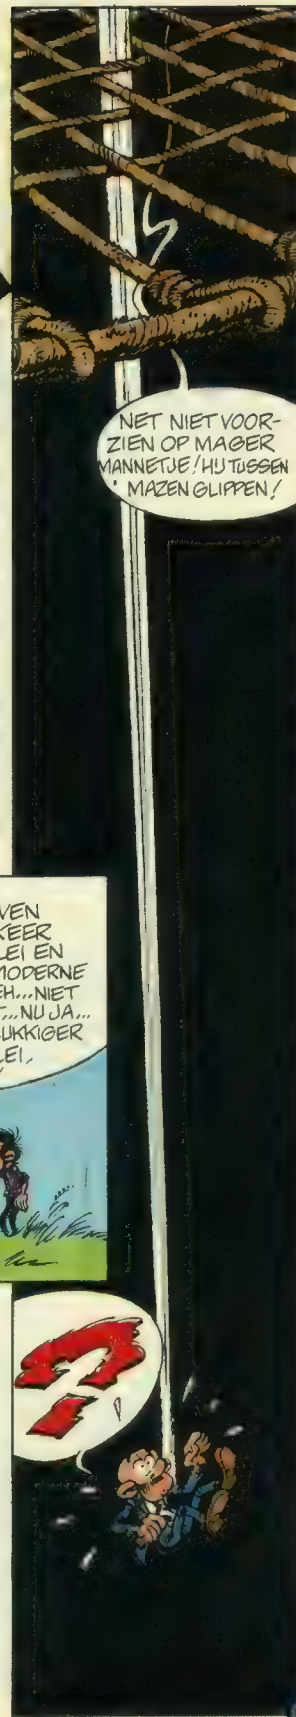 NET NIET VOOR-
ZIEN OP MAGER
MANNETJE! HIJ TUSSEN
MAZEN GLIPPEN!
VEN
KEER
LEI EN
MODERNE
EH...NIET
T...NU JA...
UKKIGER
LEI,
?